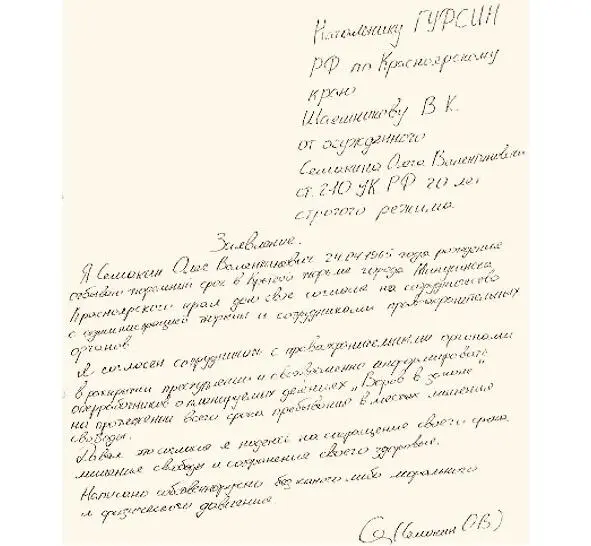 Начальнику ГУФСИН
РФ по Красноярскому
краю
Шаешникову В К.
от осужденного
Семакина Олега Валентиновича
ст. 210 УК РФ 20 лет
строгого режима.
Заявление.
Я Семакин Олег Валентинович 24.04.1965 года рождения
отбываю тюремный срок в Крытой тюрьме города Минусинска
Красноярского края даю свое согласие на сотрудничество
с администрацией тюрьмы и сотрудниками правоохранительных
органов
Я согласен сотрудничать с правоохранительными органами
в раскрытии преступлений и своевременно информировать
оперработников о планируемых деяниях „Воров в законе"
на протяжении всего срока пребывания в местах лишения
свободы.
Давая это согласие я надеюсь на сокращение своего срока
лишения свободы и сохранения своего здоровья.
Написано собственноручно без какого либо морального
и физического давления.
(Семакин ОВ)